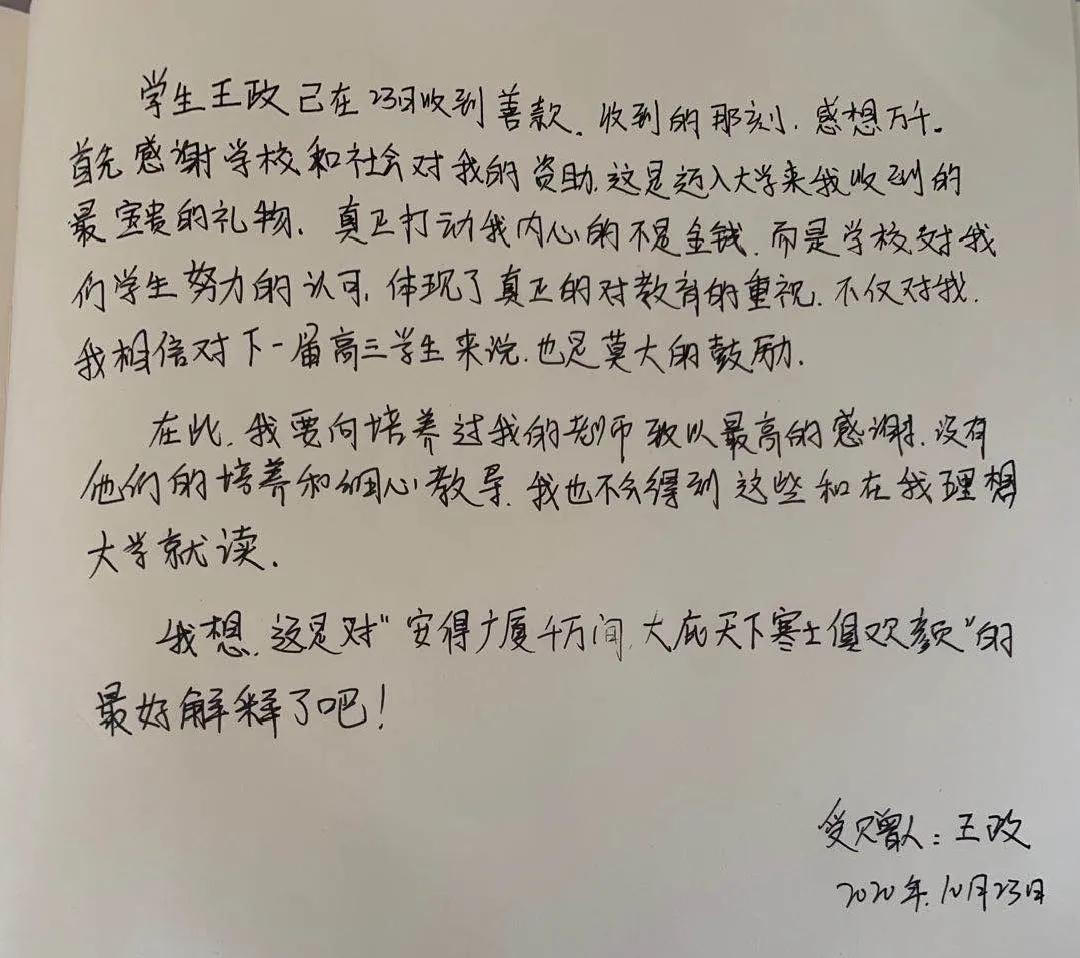 学生王政已在23日收到善款。收到的那刻,感想万千。
首先感谢学校和社会对我的资助,这是迈入大学来我收到的
最宝贵的礼物,真正打动我内心的不是金钱,而是学校对我
们学生努力的认可,体现了真正的对教育的重视,不仅对我,
我相信对下一届高三学生来说,也是莫大的鼓励.
在此,我要向培养过我的老师致以最高的感谢,没有
他们的培养和细心教导,我也不会得到这些和在我理想
大学就读.
我想,这是对"安得广厦千万间,大庇天下寒士俱欢颜"的
最好解释了吧!
受赠人:王政
2020年.10月23日